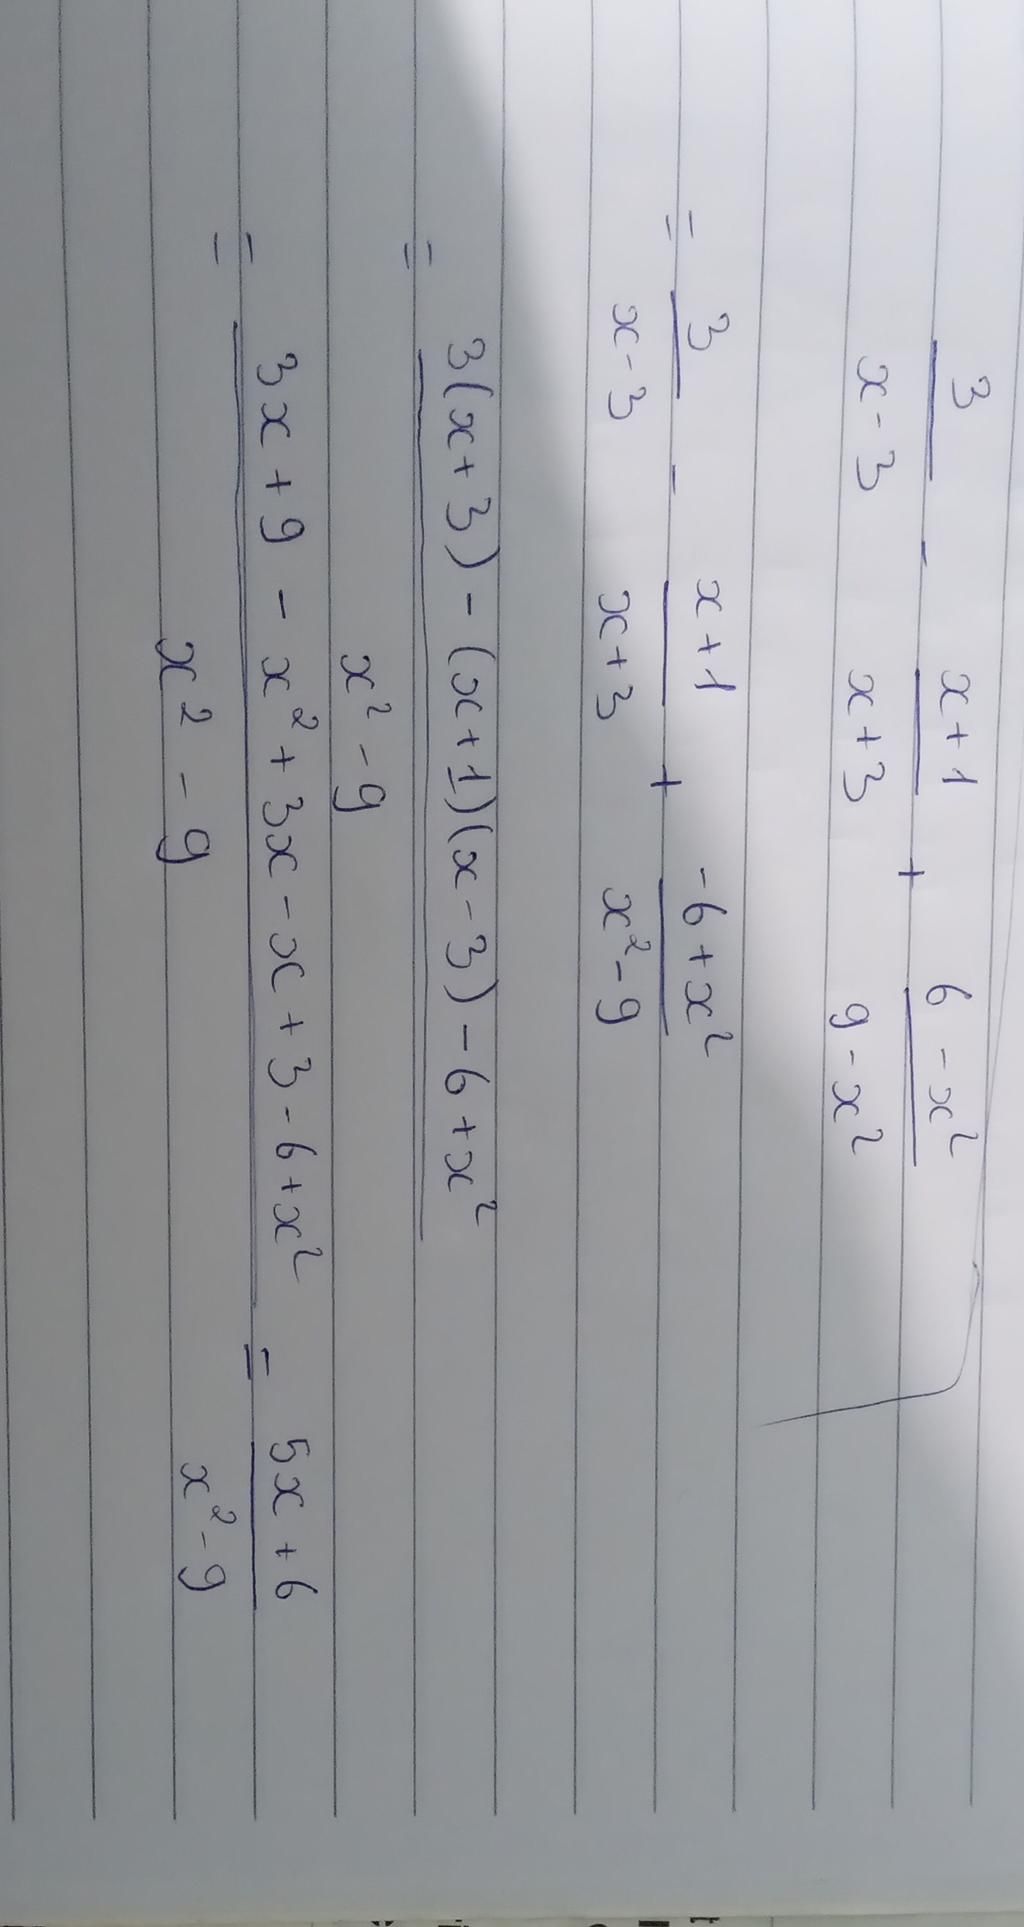 3/(x-3) - (x+1)/(x+3) + (6-x²)/(9-x²)
= 3/(x-3) - (x+1)/(x+3) + (-6+x²)/(x²-9)
= (3(x+3)-(x+1)(x-3)-6+x²)/(x²-9)
= (3x+9-x²+3x-x+3-6+x²)/(x²-9) = (5x+6)/(x²-9)